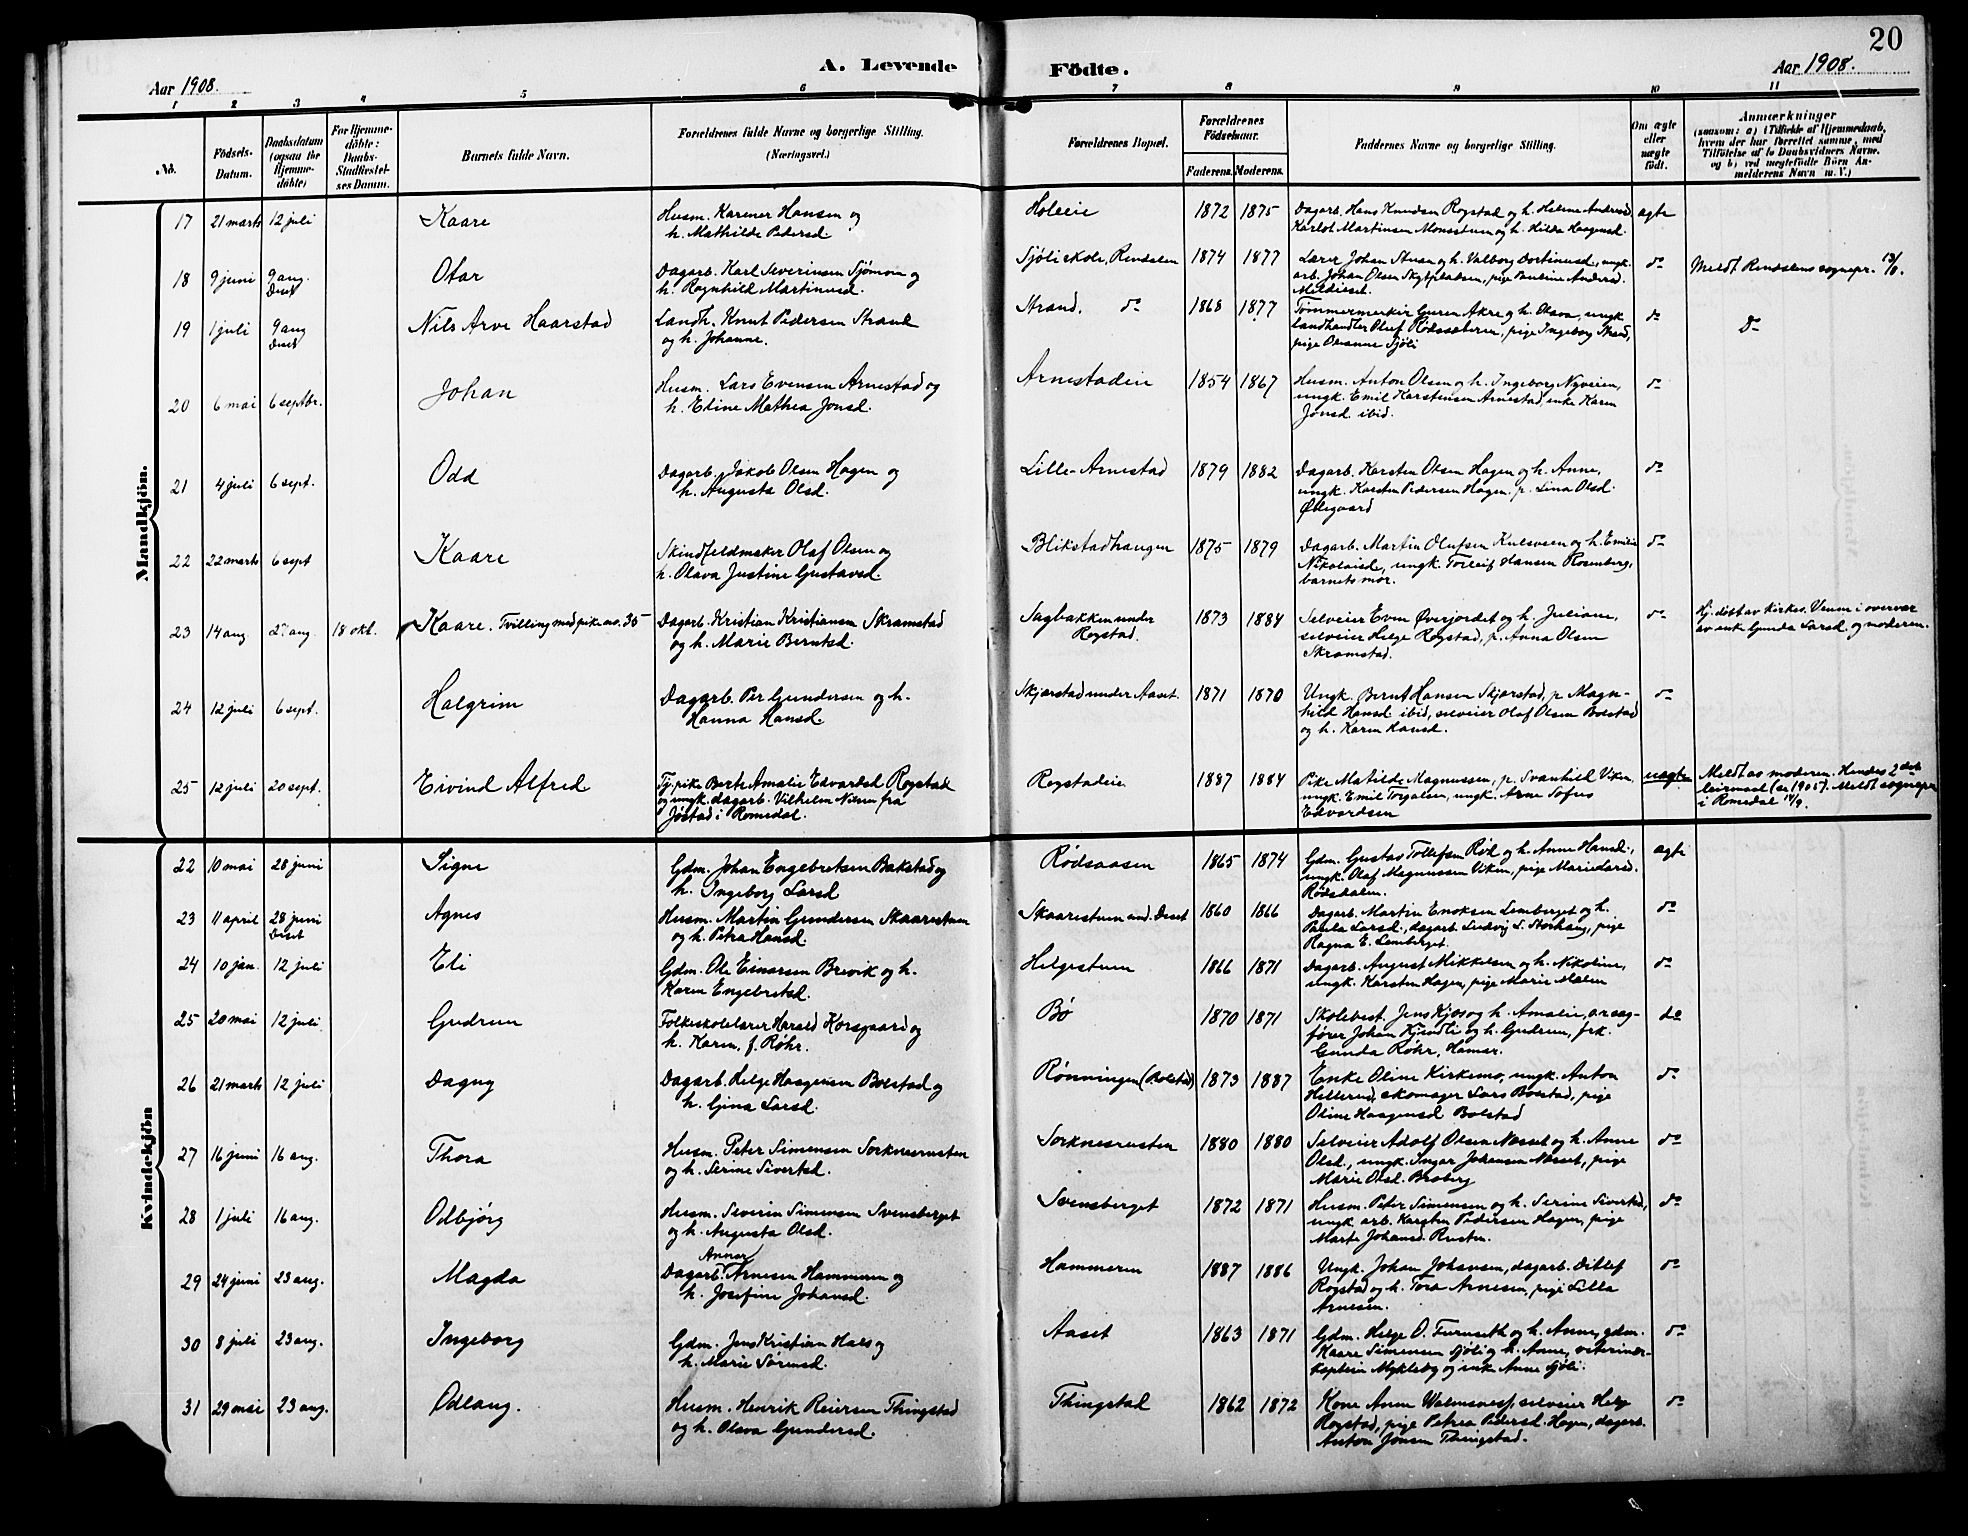 20
A. Levende
Födte.
Aar 1908.
Aar 1908.
1 2 3 4 5 6 7 8 9 10 11
No.
Födsels-Datum.
Daabsdatum (ogsaa for Hjemme-döbte)
For Hjemme-döbte: Daabs-Stadfæstel-ses Datum.
Barnets fulde Navn.
Forældrenes fulde Navne og borgerlige Stilling. (Næringsvei.)
Forældrenes Bopæl.
Forældrenes Födselsaar.
Faderens. Moderens.
Faddernes Navne og borgerlige Stilling.
Om ægte eller uægte födt.
Anmærkninger
(saasom: a) i Tilfælde af Hjemmedaab,
hvem der har forrettet samme, med
Tilföielse af to Daabsvidners Navne.
og b) ved uægtefödte Börn An-
melderens Navn m. V.)
Mandkjön.
17 21 marts 12 juli Kaare
Husm. Karener Hansen og
h. Mathilde Pedersd.
Holeie 1872 1875
Dagarb. Hans Knudsen Rogstad og h. Helene Andersd.
Karlot Martinsen Monsstuen og h. Hilda Haagensd.
ægte
18 9 juni 9 aug. Deset Otar
Dagarb. Karl Severinsen Sjømoen og
h. Ragnhild Martinusd.
Sjøli skole, Rendalen 1874 1877
Lærer Johan Stuan og h. Valborg Dortinusd., ungk.
arb. Johan Olsen pige Pauline Andersd.
do
Meldt Rendalens sognepr. 13/8.
19 1 juli 9 aug Deset Nils Arve Haarstad
Landh. Knut Pedersen Strand
og h. Johanne.
Strand. do 1868 1877
Tømmermerker Guren Akre og h. Olava, ungk.
landhandler Oluf Rødssæteren, pige Ingeborg Strand,
pige Oleanne Sjøli
do
do
20 6 mai 6 septbr. Johan
Husm. Lars Evensen Arnestad og
h. Edine Mathea Jonsd.
Arnestadeie 1854 1867
Husm. Anton Olsen og h. Ingeborg Nyveien,
ungk. Emil Karstensen Arnestad, enke Karen
Jonsd. ibid.
do
21 4 juli 6 sept. Odd
Dagarb. Jakob Olsen Hagen og
h. Augusta Olsd.
Lille-Arnestad 1879 1882
Dagarb. Karsten Olsen Hagen og h. Anne,
ungk. Karsten Pedersen Hagen. p. Lina Olsd.
Østgaard
do
22 22 marts 6 sept Kaare
Skindfeldmaker Olaf Olsen og
h. Olava Justine Gustavsd.
Blikstadhaugen 1875 1879
Dagarb. Martin Olufsen Kulsveen og h. Emilie
Nikolaisd., ungk. Torleif Hansen Rosenberg,
barnets mor.
do
23 14 aug. 27 aug. 18 okt. Kaare. Tvilling med pike no. 35
Dagarb. Kristian Kristiansen Skramstad
og h. Marie Berntsd.
Sagbakken under
Rogstad. 1873 1884
Selveier Even Øverjordet og h. Juliane,
selveier Helge Rogstad, p. Anna Olsen
Skramstad.
do
Hj. døbt av kirkes. Venm i overvær
av enke Gunda Larsd. og moderen.
24 12 juli 6 sept. Halgrim
Dagarb. Per Gundersen og h.
Hanna Hansd.
Skjærstad under Aaset. 1871 1870
Ungk. Bernt Hansen Skjærstad, p. Magn-
hild Hansd. ibid, selveier Olaf Olsen Bolstad
og h. Karen Hansd.
do
25 12 juli 20 sept. Eivind Alfred
Tj. pike Berte Amalie Edvardsd. Rogstad
og ungk. dagarb. Vilhelm Nilsen fra
Jøstad i Romedal.
Rogstadeie 1887 1884
Pike Matilde Magnussen, p. Svanhild Viken,
ungk. Emil Torgalsen, ungk. Arne Sofus
Edvardsen
uægte
Meldt av moderen. Hendes 2det
leiermaal (se 1905). Meldt sognepr.
i Romedal 14/9.
Kvindekjön
22 10 mai 28 juni Signe
Gdm. Johan Engebretsen Bakstad og
h. Ingeborg Larsd.
Rødsaasen 1865 1874
Gdm. Gustav Tollefsen Rød og h. Anne Hansd.,
ungk. Olaf Magnussen Viken, pige Marie Larsd.
Rødsdalen.
ægte
23 11 april 28 juni Deset Agnes
Husm. Martin Gundersen Skaarestuen
og h. Petra Hansd.
Skaarestuen und. Deset 1860 1866
Dagarb. Martin Enoksen Lemberget og h.
Paula Larsd., dagarb. Ludvig L. Storhaug, pige
Ragna E. Lemberget.
do
24 10 jan. 12 juli Eli
Gdm. Ole Einarsen Brevik og h.
Karen Engebretsd.
Helgestuen 1866 1871
Dagarb. August Mikkelsen og h. Nikoline,
ungk. Karsten Hagen, pige Marie Malen
do
25 20 mai 12 juli. Gudrun
Folkeskolelærer Harald Korsgaard og
h. Karen, f. Røhr.
Bø 1870 1871
Skolebest. Jens Kjøs og h. Amalie, o.r.sag-
fører Johan Kjendli og h. Gudrun, frk.
Gunda Røhr, Hamar.
do
26 21 marts 12 juli Dagny
Dagarb. Helge Haagensen Bolstad og
h. Gina Larsd.
Rønningen (Bolstad) 1873 1887
Enke Oline Kirkemo, ungk. Anton
Hillerud, skomager Lars Bolstad, pige
Oline Haagensd. Bolstad
do
27 16 juni 16 aug. Thora
Husm. Peter Simensen Sorknesrusten
og h. Serine Sivertsd.
Sorknesrusten 1880 1880
Selveier Adolf Olsen Næset og h. Anne
Olsd., ungk. Ingar Johansen Næset, pige
Marie Olsd. Broberg
do
28 1 juli 16 aug. Odbjörg
Husm. Severin Simensen Svensberget
og h. Augusta Olsd.
Svensberget 1872 1871
Husm. Peter Simensen og h. Serine Sivertsd,
ungk. arb. Karsten Pedersen Hagen, pige
Marte Johansd. Rusten.
do
29 24 juni 23 aug. Magda
Annar
Dagarb. Arnesen Hammeren og
h. Josefine Johansd.
Hammeren 1887 1886
Ungk. Johan Johansen, dagarb. Ditlef
Rogstad og h. Tora Arnesen, pige Lilla
Arnesen.
do
30 8 juli 23 aug. Ingeborg
Gdm. Jens Kristian Hals og
h. Marie Sørensd.
Aaset 1863 1871
Gdm. Helge O. Furuseth og h. Anne, gdm.
Kaare Simensen Sjøli og h. Anne, veterinær-
kaptein Myklebg og enke Anne Sjøli.
do
31 29 mai 23 aug. Odlaug.
Husm. Henrik Reiersen Thingstad
og h. Olava Gundersd.
Thingstad 1862 1872
Kone Anne selveier Helge
Rogstad, pige Petra Pedersd. Hagen, dagarb.
Anton Jonsen Thingstad.
do